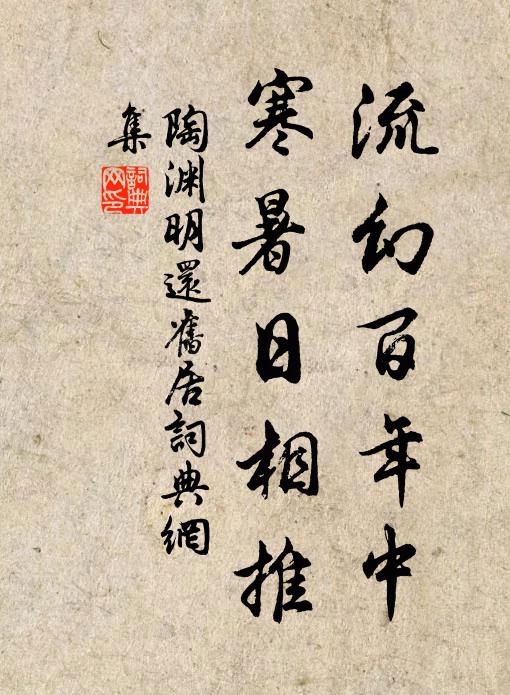 流幻百年中
寒暑日相推
陶渊明還舊居詞典網
集
詞典
网印